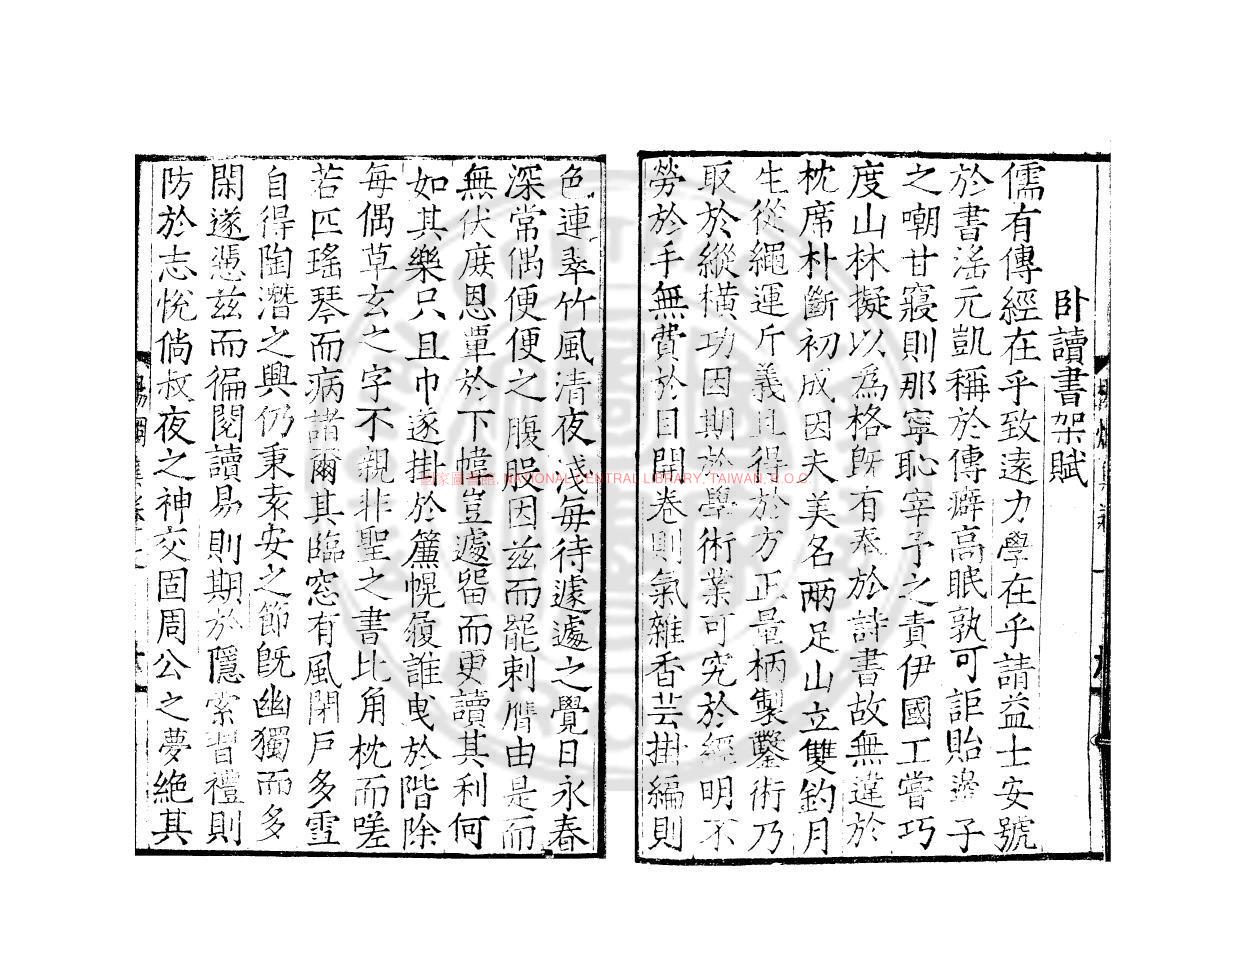 卧讀書架賦
儒有傳經在乎致遠力學在乎請益士安號
於書滛元凱稱於傳癖高眠孰可詎貽邊子
之嘲甘寢則那寧恥宰予之責伊國工嘗巧
度山林擬以為格旣有奉於詩書故無違於
枕席朴斷初成因夫美名兩足山立雙鈎月
生從繩運斤義且得於方正量柄製鑿術乃
取於縱橫功因期於學術業可究於經明不
勞於手無費於目開卷則氣雜香芸掛編則
色連翠竹風清夜淺每待遽遽之覺日永春
深常偶便便之腹股因茲而罷刺膺由是而
無伏庶恩覃於下幃豈遽留而更讀其利何
如其樂只且巾遂掛於簾幌履誰曳於階除
每偶草玄之字不親非聖之書比角枕而嗟
若匹瑤琴而病諸爾其臨窓有風閉戶多雪
自得陶潛之興仍秉袁安之節旣幽獨而多
閑遂憑茲而徧閱讀易則期於隱索習禮則
防於志悅倘叔夜之神交固周公之夢絶其
國家圖書館, NATIONAL CENTRAL LIBRARY, TAIWAN, R.O.C